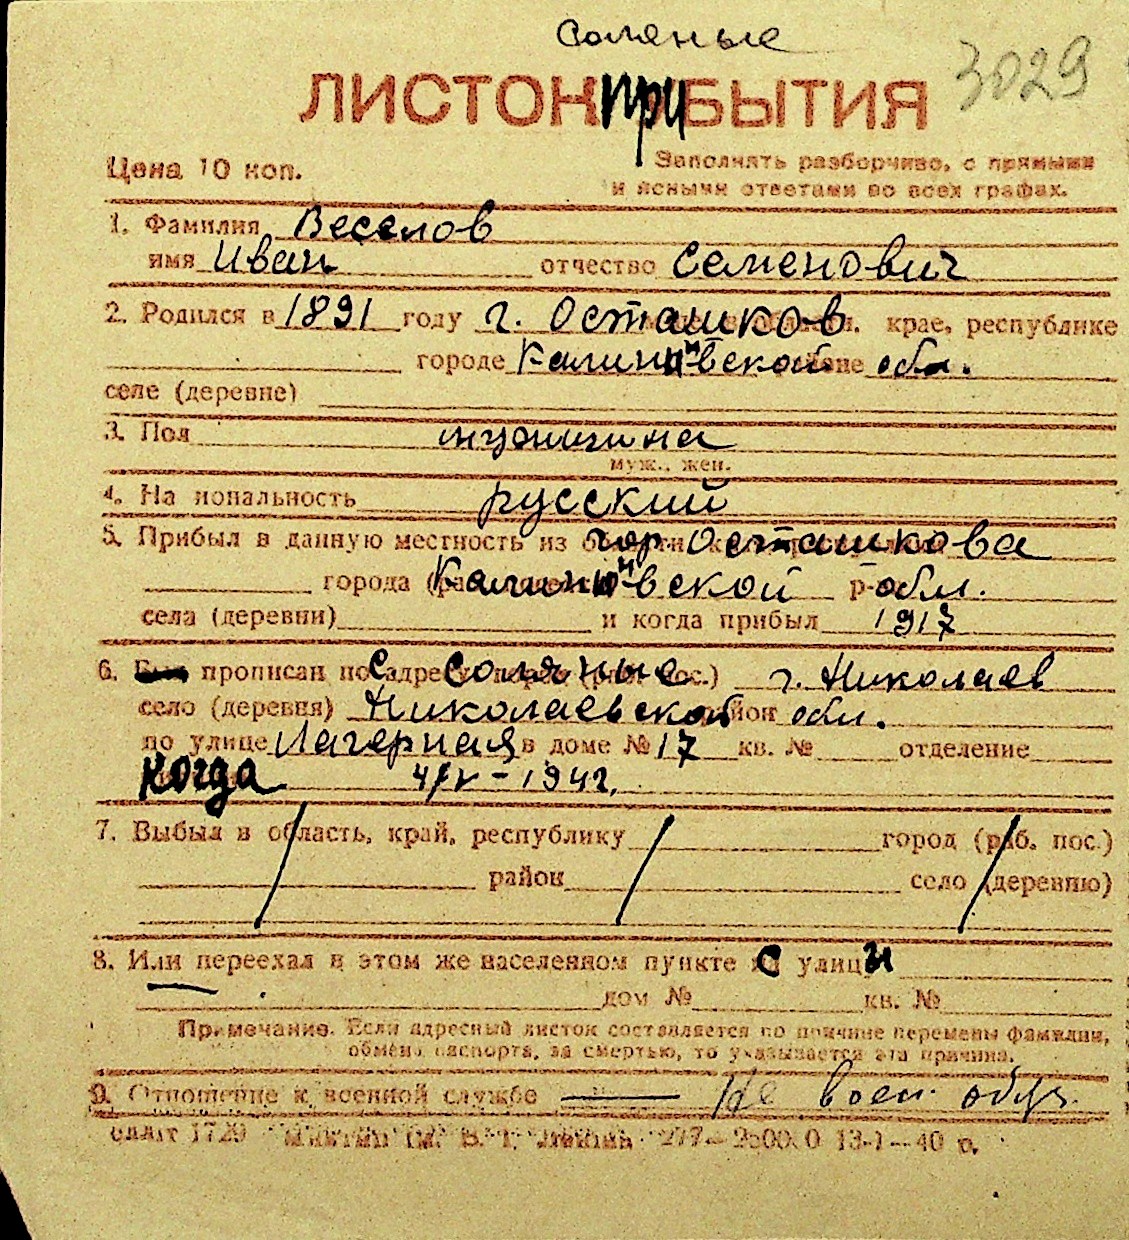 Соляные
ЛИСТОК ПРИБЫТИЯ 3029
Цена 10 коп. Заполнять разборчиво, с прямыми
и ясными ответами во всех графах.
1. Фамилия Веселов
имя Иван отчество Семенович
2. Родился в 1891 году г. Осташков крае, республике
городе Калининской обл.
селе (деревне)
3. Пол мужчина
муж., жен.
4. Национальность русский
5. Прибыл в данную местность из гор. Осташкова
города Калининской обл.
села (деревни) и когда прибыл 1917
6. прописан по адресу с. Соляные г. Николаев
село (деревня) Николаевской район обл.
по улице Лагерная в доме № 17 кв. № отделение
когда 4/V - 1942,
7. Выбыл в область, край, республику город (раб. пос.)
район село (деревню)
8. Или переехал в этом же населенном пункте с улицы
дом № кв. №
Примечание. Если адресный листок составляется по причине перемены фамилии,
обмена паспорта, за смертью, то указывается эта причина.
9. Отношение к военной службе — Не воен. обяз.
13-1-40 р.